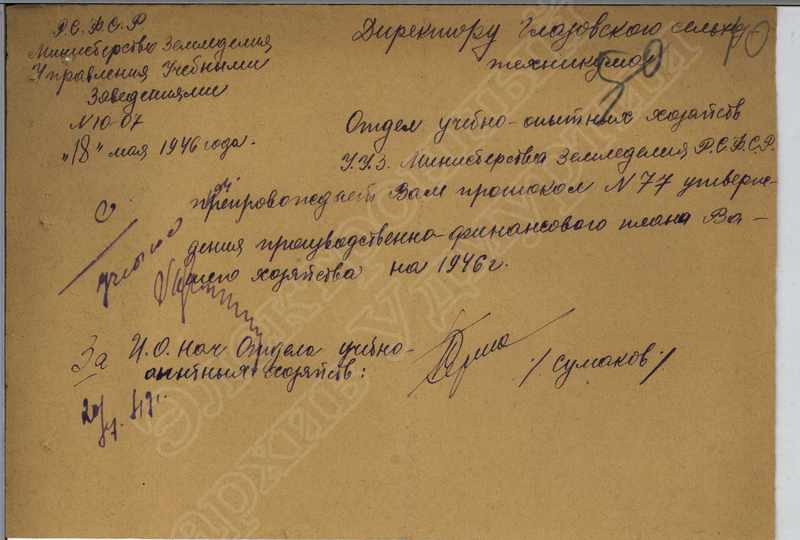 Р.С.Ф.С.Р
Министерство Земледелия
Управления Учебными
Заведениями
N 10-07
"18" мая 1946 года.
Директору Глазовского сельхоз
техникума
50
Отдел учебно-опытных хозяйств
У.У.З. Министерства Земледелия Р.С.Ф.С.Р.
препровождает Вам протокол N 77 утверж-
дения производственно-финансового плана Ва-
шего хозяйства на 1946 г.
За И.О. нач Отдела учебно-
опытных хозяйств:
/Сумаков/